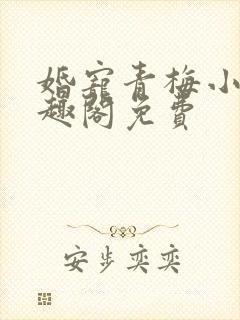 婚宠青梅小
趣阁免费
安步奕奕